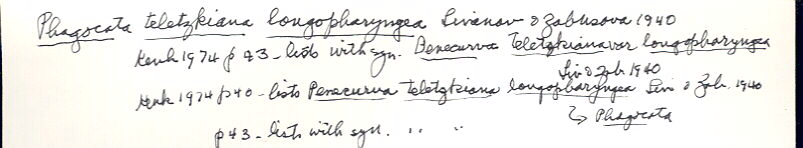 Phagocata teletzkiana longopharyngea Livanov & Zabusova 1940
Kenk 1974 p 43 - lists with syn. Penecurva teletzkiana var longopharyngea
Liv & Zab 1940
Kenk 1974 p 40 - lists Penecurva teletzkiana longopharyngea Liv & Zab. 1940
↳ Phagocata
p 43 - lists with syn. " "